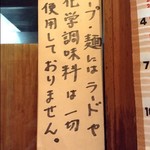 ープ・麺にはラードや
化学調味料は一切
使用しておりません。